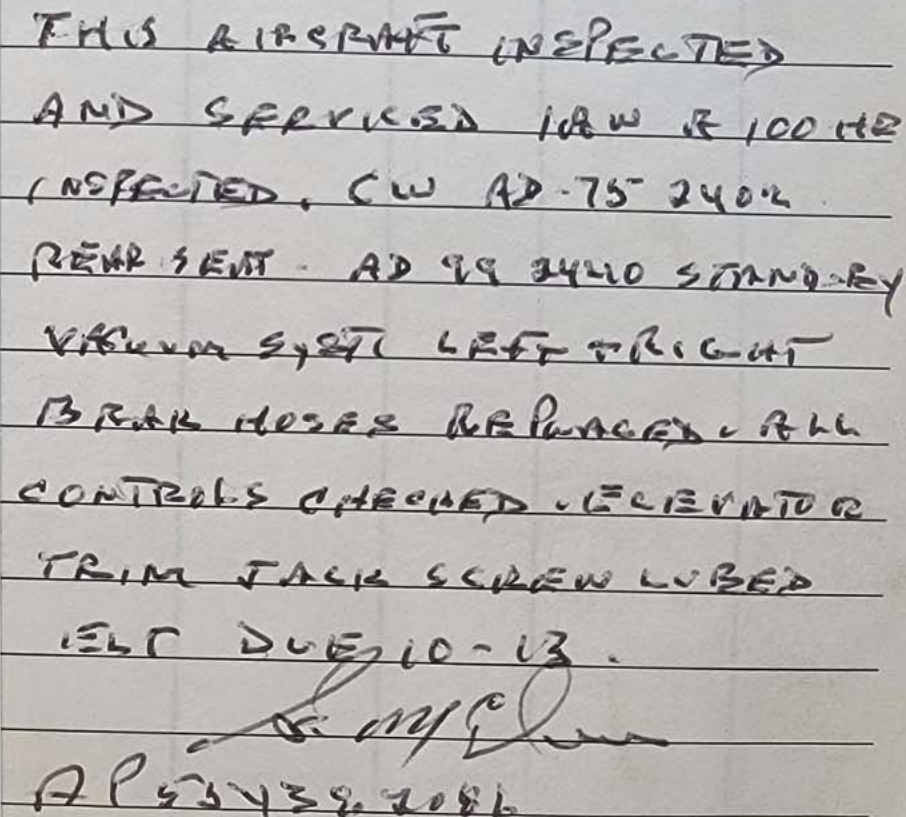 THIS AIRCRAFT INSPECTED
AND SERVICED IAW A 100 HR
INSPECTED. CW AD-75 2402
REAR SEAT. AD 99 24210 STAND-BY
VACUUM SYST LEFT + RIGHT
BRAK HOSES REPLACED. ALL
CONTROLS CHECKED. ELEVATOR
TRIM JACK SCREW LUBED
ELT DUE 10-13.
AP